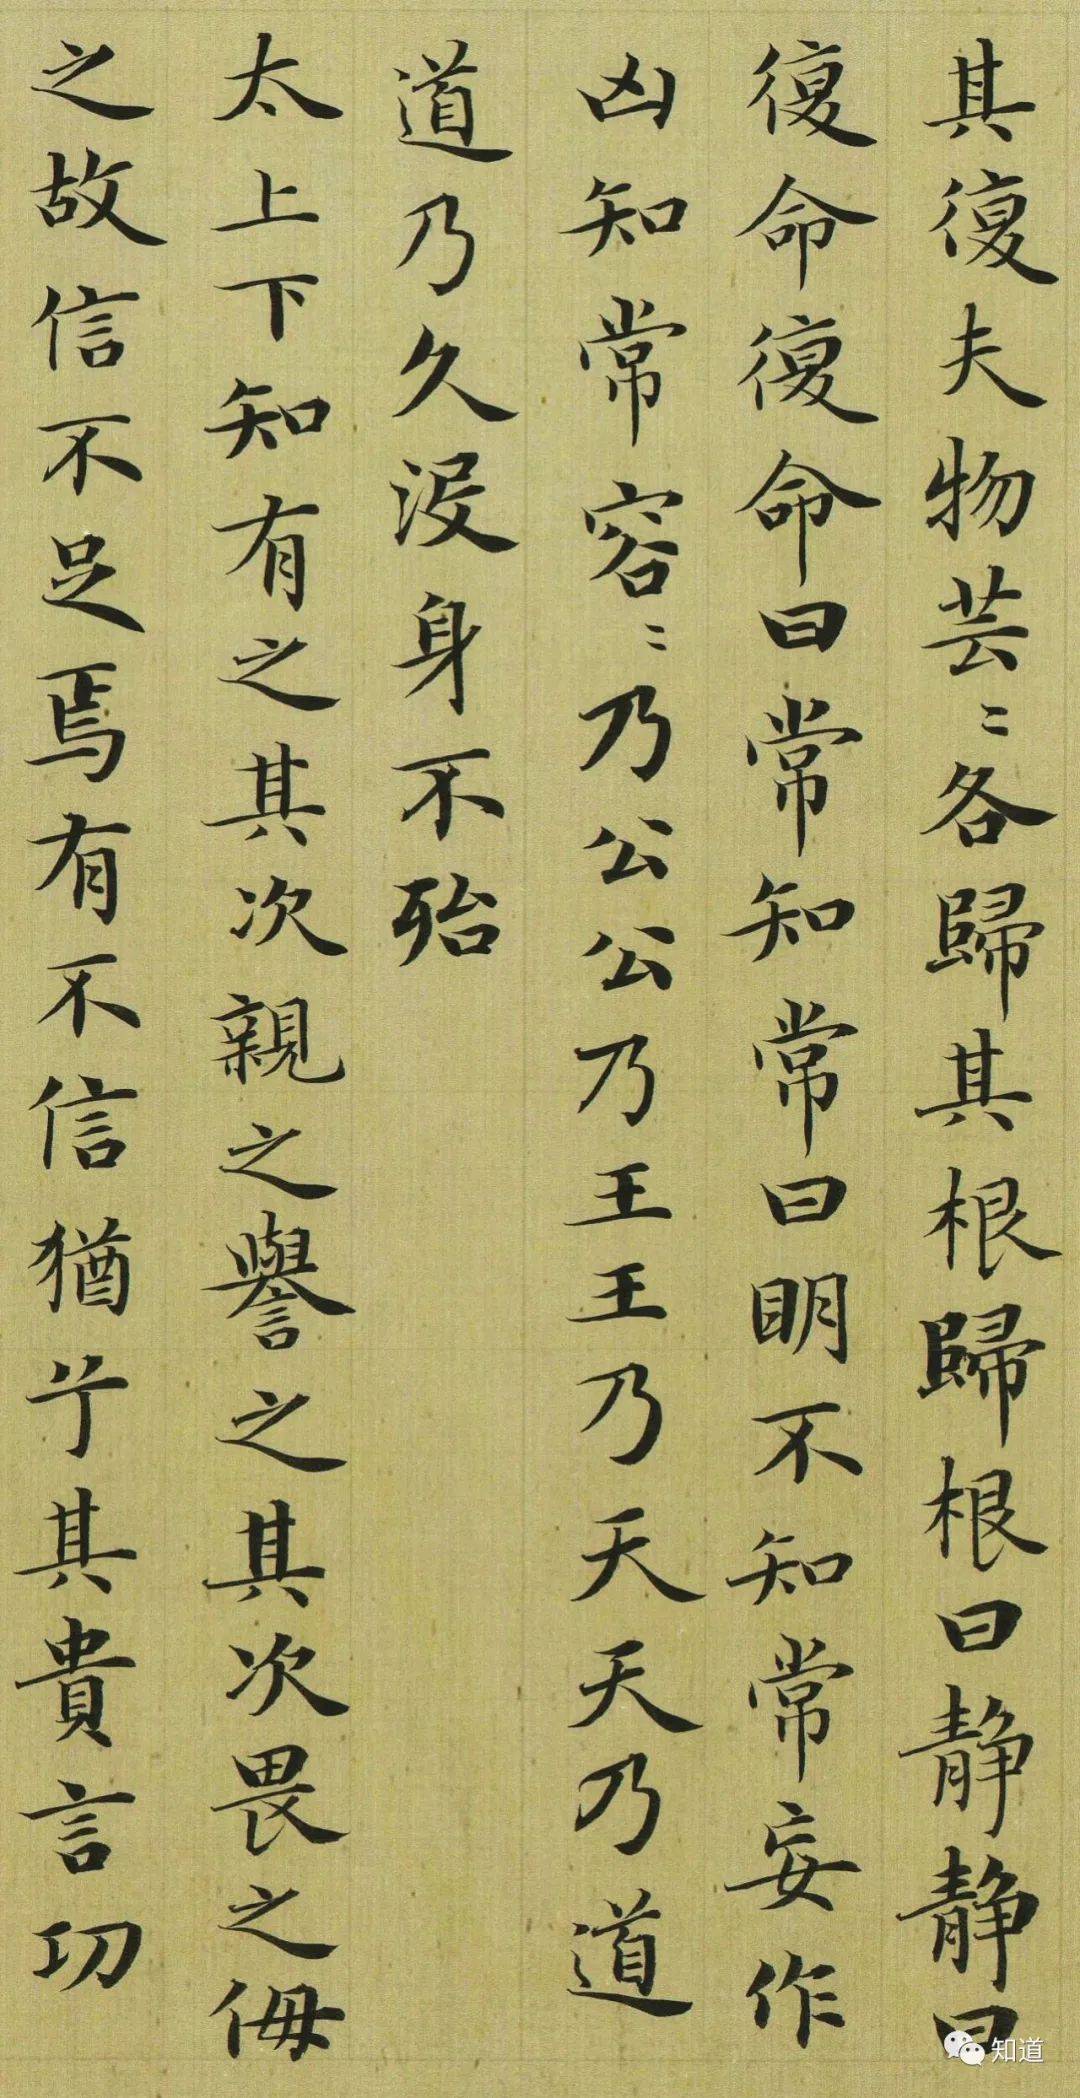 其復夫物芸〻各歸其根歸根曰静静曰
復命復命曰常知常曰眀不知常妄作
凶知常容〻乃公公乃王王乃天天乃道
道乃久沒身不殆
太上下知有之其次親之譽之其次畏之侮
之故信不足焉有不信猶兮其貴言功
知道